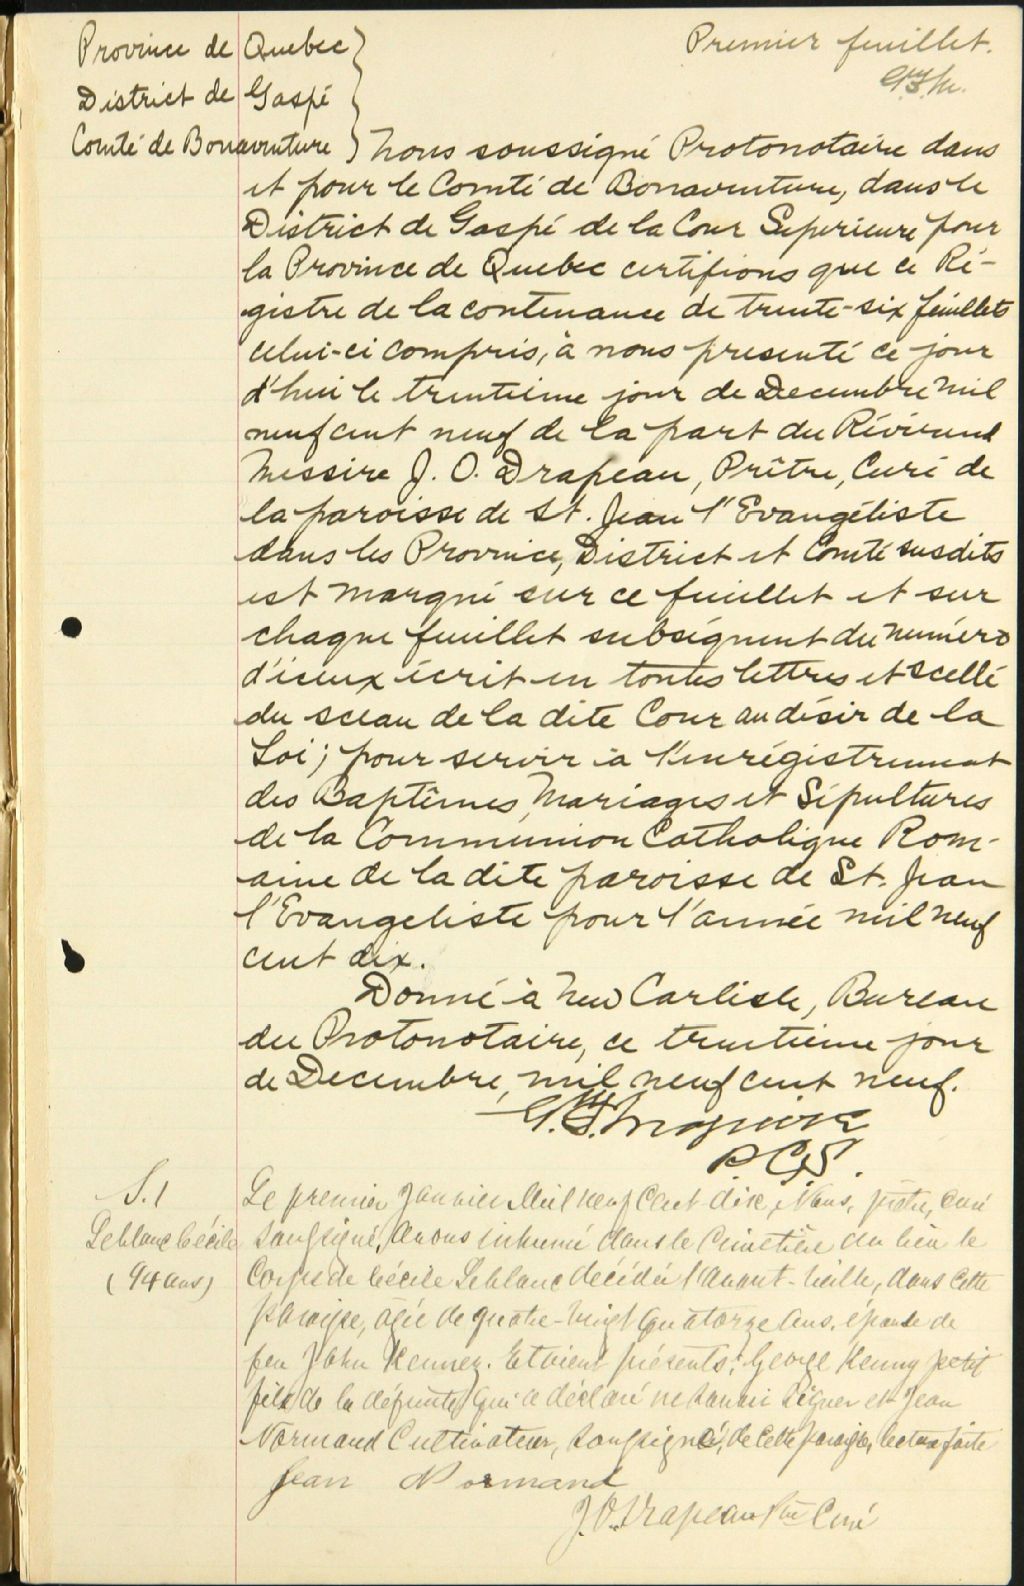 Premier feuillet.
Province de Quebec
District de Gaspé
Comté de Bonaventure
Nous soussigné Protonotaire dans
et pour le Comté de Bonaventure, dans le
District de Gaspé de la Cour Superieure pour
la Province de Quebec certifions que ce Ré-
gistre de la contenance de trente-six feuillets
celui-ci compris, à nous presenté ce jour
d'hui le trentième jour de Decembre mil
neuf cent neuf de la part du Révérend
Messire J. O. Drapeau, Prêtre, Curé de
la paroisse de St. Jean l'Evangéliste
dans les Province, District et Comté susdits
est margné sur ce feuillet et sur
chaque feuillet subséquent du numéro
d'iceux écrit en toutes lettres et scellé
du sceau de la dite Cour au désir de la
Loi; pour servir à l'enrégistrement
des Baptêmes, Mariages et Sépultures
de la Communion Catholique Rom-
aine de la dite paroisse de St. Jean
l'Evangeliste pour l'année mil neuf
cent dix.
Donné à New Carlisle, Bureau
du Protonotaire, ce trentième jour
de Decembre, mil neuf cent neuf.
P.C.S.
S.1
Leblanc Cécile
(94 ans)
Le premier Janvier Mil neuf Cent dix, Nous, prêtre, curé
soussigné, avons inhumé dans le Cimetière du lieu le
Corps de Cécile Leblanc décédée l'avant-veille, dans cette
paroisse, agée de quatre-vingt quatorze ans, épouse de
feu John Kenney. Etaient présents: George Kenny petit
fils de la défunte qui a déclaré ne savoir signer et Jean
Normand Cultivateur, soussigné, de cette paroisse, lecture faite
Jean Normand
J.O. Drapeau Ptre Curé